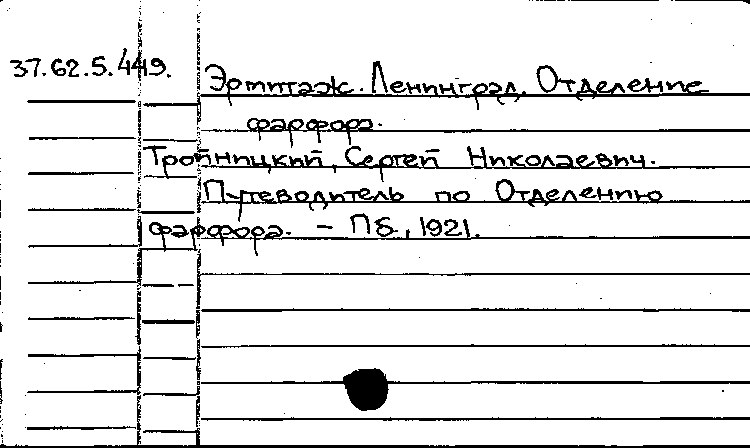 37.62.5.449.
Эрмитаж. Ленинград. Отделение
фарфора.
Тройницкий, Сергей Николаевич.
Путеводитель по Отделению
фарфора. – Пб, 1921.